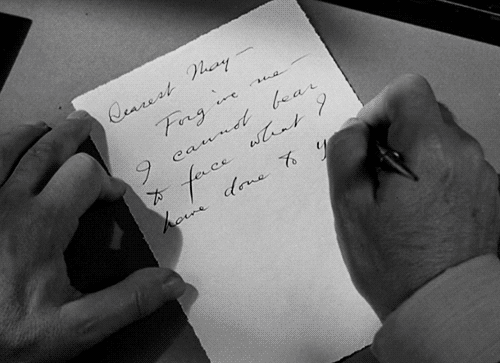 Dearest May—
Forgive me—
I cannot bear
to face what I
have done to y